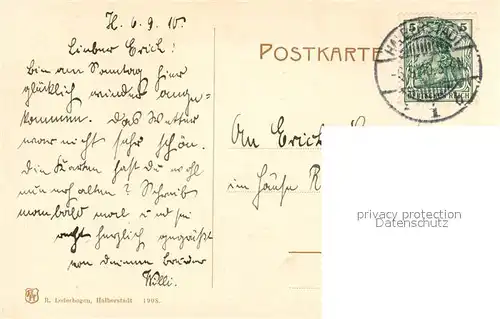 H. 6. 9. 10.
Lieber Erich!
Bin am Sonntag hier
glücklich wieder ange-
kommen. Das Wetter
war nicht sehr schön.
Die Karten hast du wohl
nun erhalten? Schreib
man bald mal u sei
recht herzlich gegrüßt
von deinem Bruder
Willi.
POSTKARTE
An Erich
im Hause R
HALBERSTADT
5 5
REICH
1
privacy protection
Datenschutz
R. Lederbogen, Halberstadt 1908.